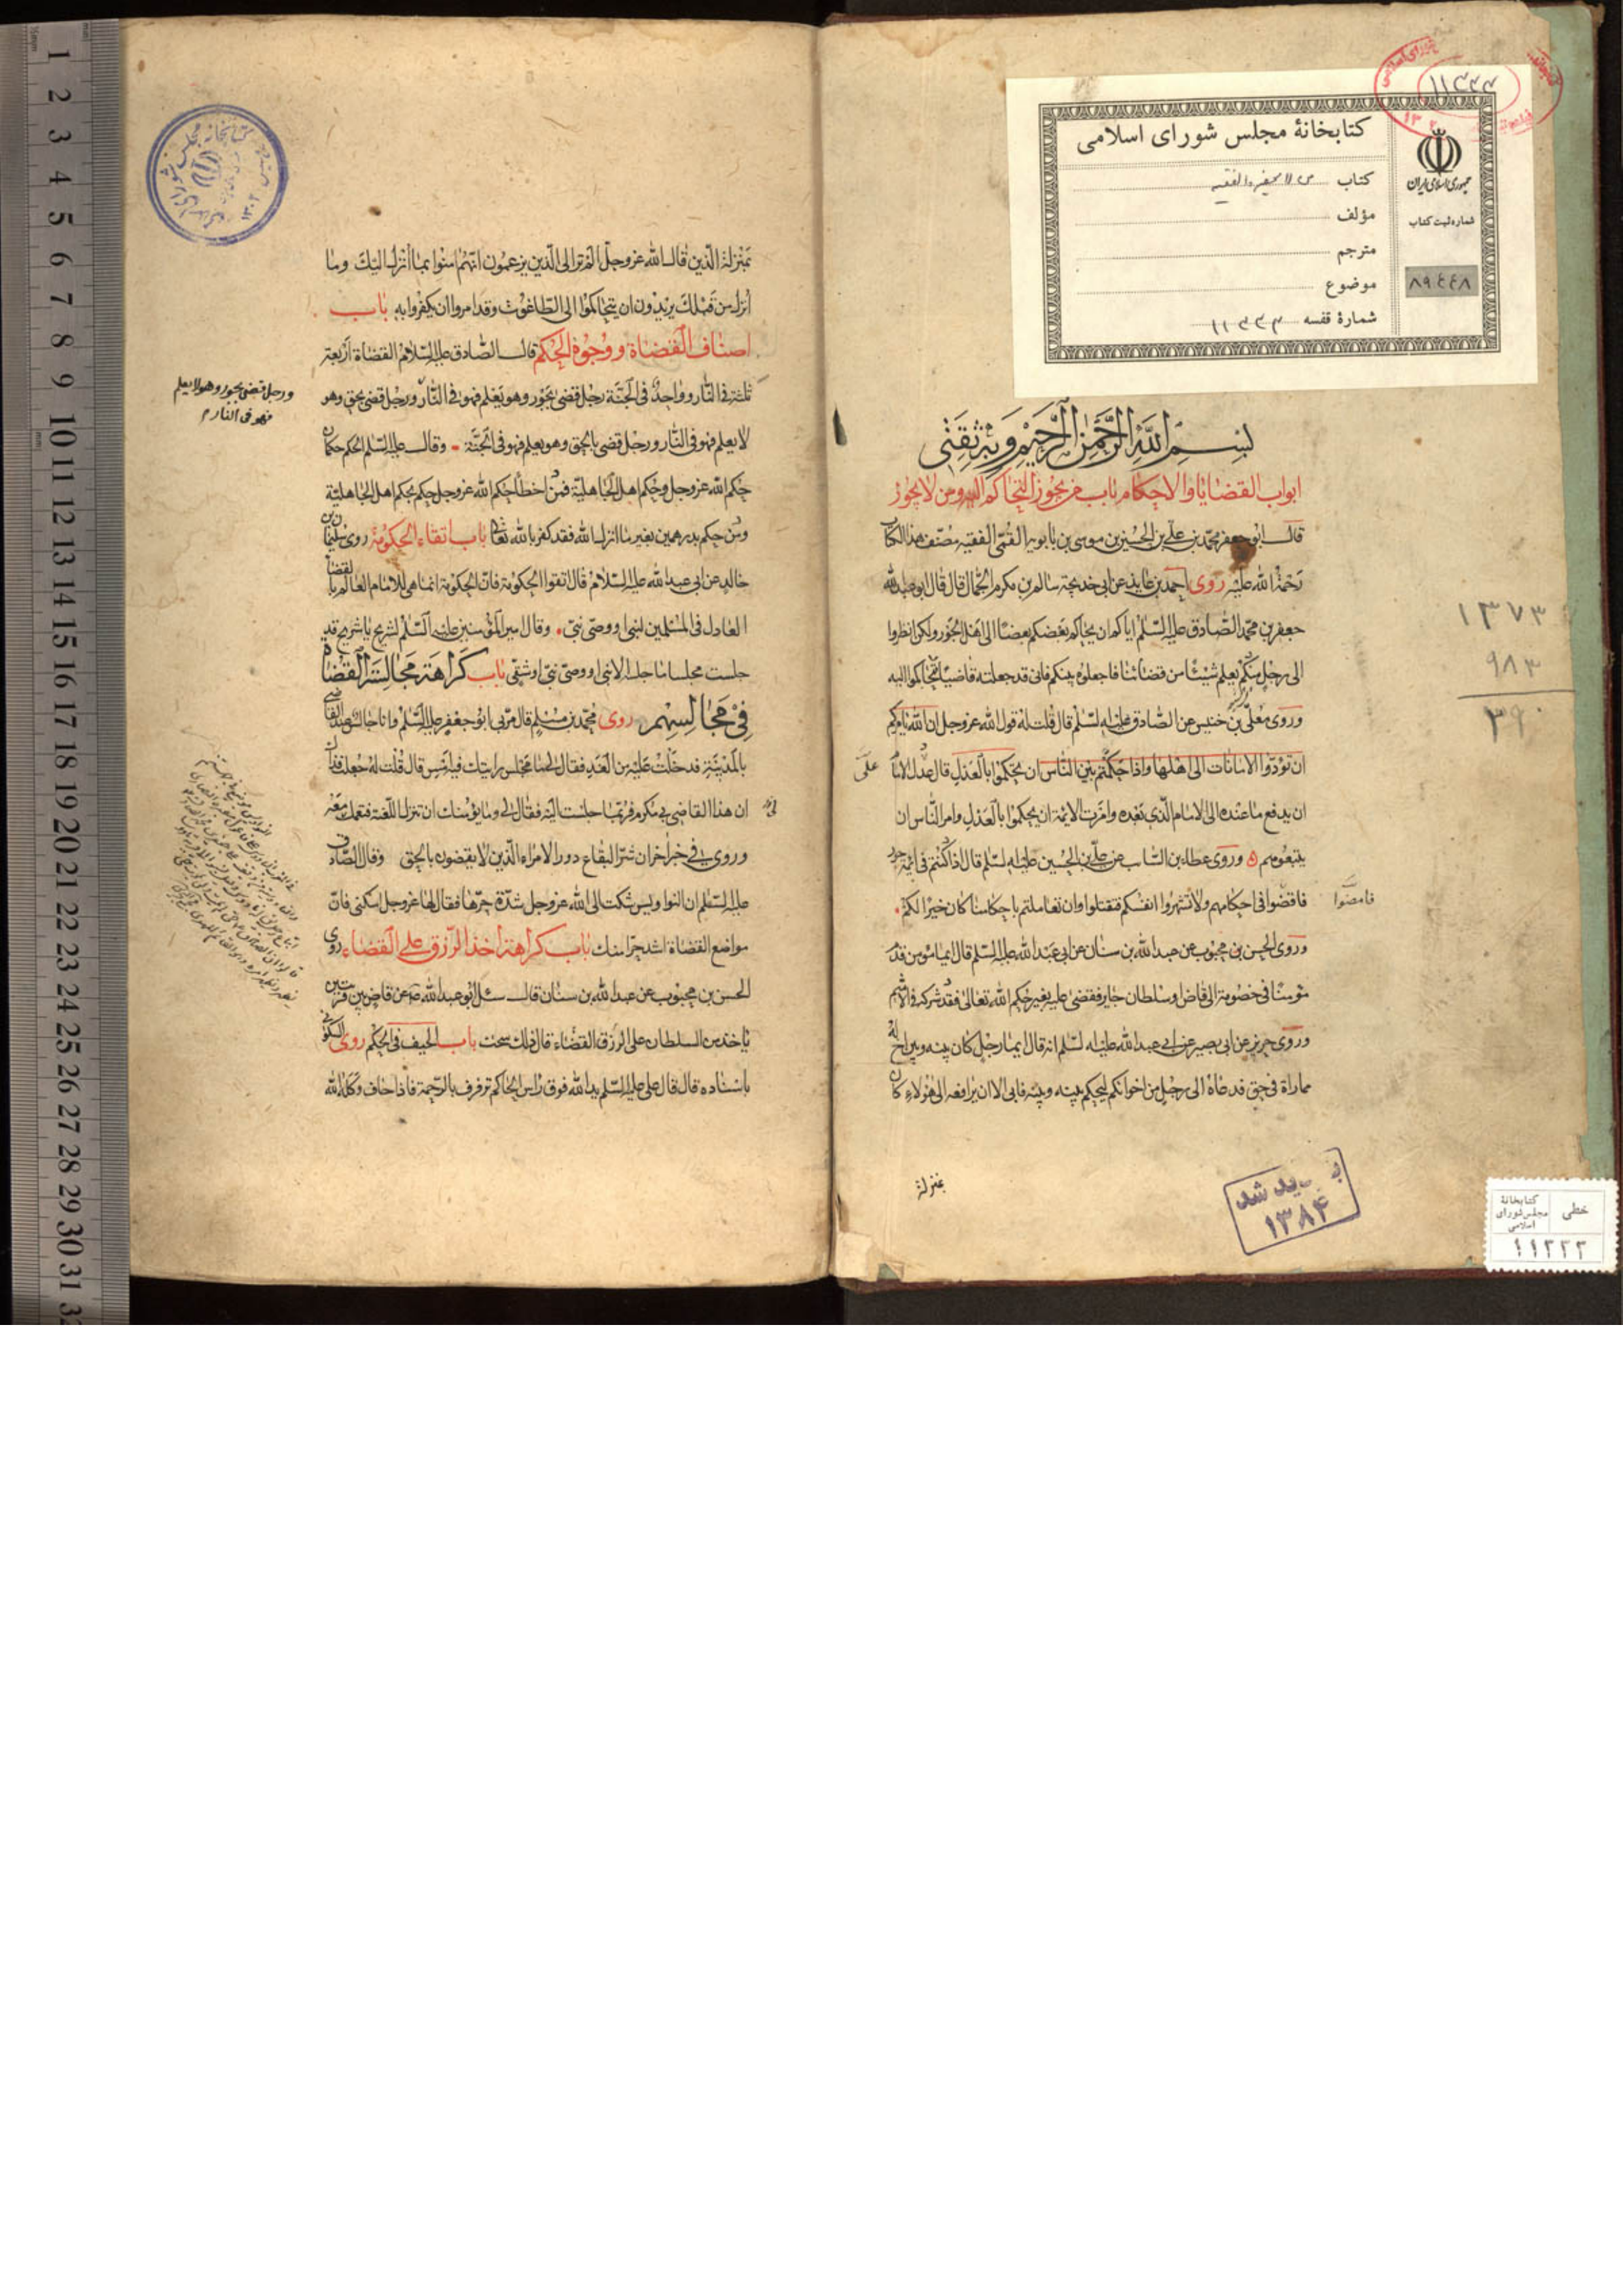 کتابخانهٔ مجلس شورای اسلامی
کتاب من لا یحضره الفقیه
مؤلف
مترجم
موضوع
شمارهٔ قفسه ۱۱۳۳۳
جمهوری اسلامی ایران
شماره ثبت کتاب
۸۹٤٤۸
بسم الله الرحمن الرحیم وبه ثقتی
ابواب القضایا والاحکام باب من یجوز التحاکم الیه ومن لا یجوز
قال ابو جعفر محمد بن علی بن الحسین بن موسی بن بابویه القمی الفقیه مصنف هذا الکتاب
رحمة الله علیه روی احمد بن عایذ عن ابی خدیجة سالم بن مکرم الجمال قال قال ابو عبدالله
جعفر بن محمد الصادق علیه السلام ایاکم ان یحاکم بعضکم بعضا الی اهل الجور ولکن انظروا
الی رجل منکم یعلم شیئا من قضائنا فاجعلوه بینکم فانی قد جعلته قاضیا فتحاکموا الیه
وروی معلی بن خنیس عن الصادق علیه السلم قال قلت له قول الله عز وجل ان الله یامرکم
ان تؤدوا الامانات الی اهلها واذا حکمتم بین الناس ان تحکموا بالعدل قال عدل الامام
علی
ان یدفع ما عنده الی الامام الذی بعده وامرت الائمة ان یحکموا بالعدل وامر الناس ان
یتبعوهم وروی عطاء بن السائب عن علی بن الحسین علیه السلم قال اذا کنتم فی ائمة جور
فاقضوا فی احکامهم ولا تشهروا انفسکم فتقتلوا وان تعاملتم باحکامنا کان خیرا لکم
فامضوا
وروی الحسن بن محبوب عن عبد الله بن سنان عن ابی عبد الله علیه السلم قال ایما مؤمن قدم
مؤمنا فی خصومة الی قاض او سلطان جایر فقضی علیه بغیر حکم الله تعالی فقد شرکه فی الاثم
وروی حریز عن ابی بصیر عن ابی عبد الله علیه السلم انه قال ایما رجل کان بینه وبین اخ له
مماراة فی حق فدعاه الی رجل من اخوانکم لیحکم بینه وبینه فابی الا ان یرافعه الی هؤلاء کان
بمنزلة
۱۳۷۳
۹۸۳
۳۹۰
۱۳۸۴
خطی
کتابخانهٔ
مجلس شورای
اسلامی
۱۱۳۳۳
بمنزلة الذین قال الله عز وجل الم تر الی الذین یزعمون انهم امنوا بما انزل الیک وما
انزل من قبلک یریدون ان یتحاکموا الی الطاغوت وقد امروا ان یکفروا به باب
اصناف القضاة ووجوه الحکم قال الصادق علیه السلام القضاة اربعة
ثلثة فی النار وواحد فی الجنة رجل قضی بجور وهو یعلم فهو فی النار ورجل قضی بحق وهو
ورجل قضی بجور وهو لا یعلم
فهو فی النار
لا یعلم فهو فی النار ورجل قضی بالحق وهو یعلم فهو فی الجنة وقال علیه السلم الحکم حکمان
حکم الله عز وجل وحکم اهل الجاهلیة فمن اخطا حکم الله عز وجل حکم بحکم اهل الجاهلیة
ومن حکم بدرهمین بغیر ما انزل الله فقد کفر بالله تعالی باب اتقاء الحکومة روی سلیمان بن
خالد عن ابی عبد الله علیه السلام قال اتقوا الحکومة فان الحکومة انما هی للامام العالم بالقضاء
العادل فی المسلمین لنبی او وصی نبی وقال امیر المؤمنین علیه السلم لشریح یا شریح قد
جلست مجلسا ما جلسه الا نبی او وصی نبی او شقی باب کراهة مجالسة القضاة
فی مجالسهم روی محمد بن مسلم قال مر بی ابو جعفر علیه السلم وانا جالس عند القاضی
بالمدینة فدخلت علیه من الغد فقال لی ما مجلس رایتک فیه امس قال قلت له جعلت فداک
ان هذا القاضی بی مکرم فربما جلست الیه فقال لی وما یؤمنک ان تنزل اللعنة فتعمک معه
وروی فی خبر اخر ان شر البقاع دور الامراء الذین لا یقضون بالحق وقال الصادق
علیه السلم ان النواویس شکت الی الله عز وجل شدة حرها فقال لها عز وجل اسکنی فان
مواضع القضاة اشد حرا منک باب کراهة اخذ الرزق علی القضاء روی
الحسن بن محبوب عن عبد الله بن سنان قال سئل ابو عبد الله عن قاض بین قریتین
یاخذ من السلطان علی الرزق القضاء قال ذلک سحت باب الحیف فی الحکم روی السکونی
باسناده قال قال علی علیه السلم ید الله فوق راس الحاکم ترفرف بالرحمة فاذا حاف وکله الله